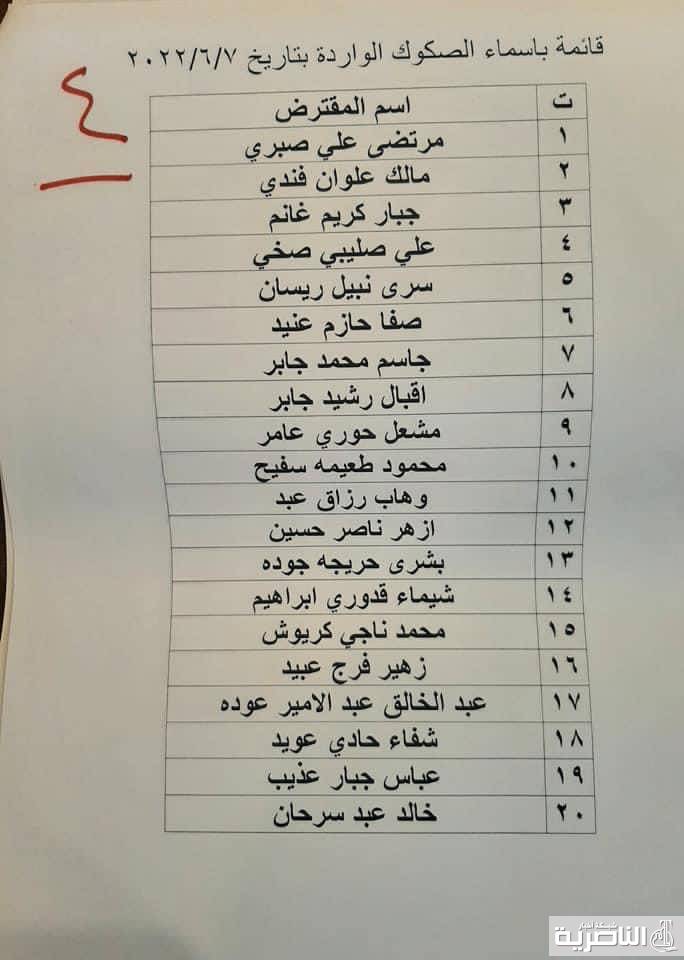 قائمة باسماء الصكوك الواردة بتاريخ ٢٠٢٢/٦/٧
٤
ت اسم المقترض
١ مرتضى علي صبري
٢ مالك علوان فندي
٣ جبار كريم غانم
٤ علي صليبي صخي
٥ سرى نبيل ريسان
٦ صفا حازم عنيد
٧ جاسم محمد جابر
٨ اقبال رشيد جابر
٩ مشعل حوري عامر
١٠ محمود طعيمه سفيح
١١ وهاب رزاق عبد
١٢ ازهر ناصر حسين
١٣ بشرى حريجه جوده
١٤ شيماء قدوري ابراهيم
١٥ محمد ناجي كريوش
١٦ زهير فرج عبيد
١٧ عبد الخالق عبد الامير عوده
١٨ شفاء حادي عويد
١٩ عباس جبار عذيب
٢٠ خالد عبد سرحان
شبكة اخبار
الناصرية